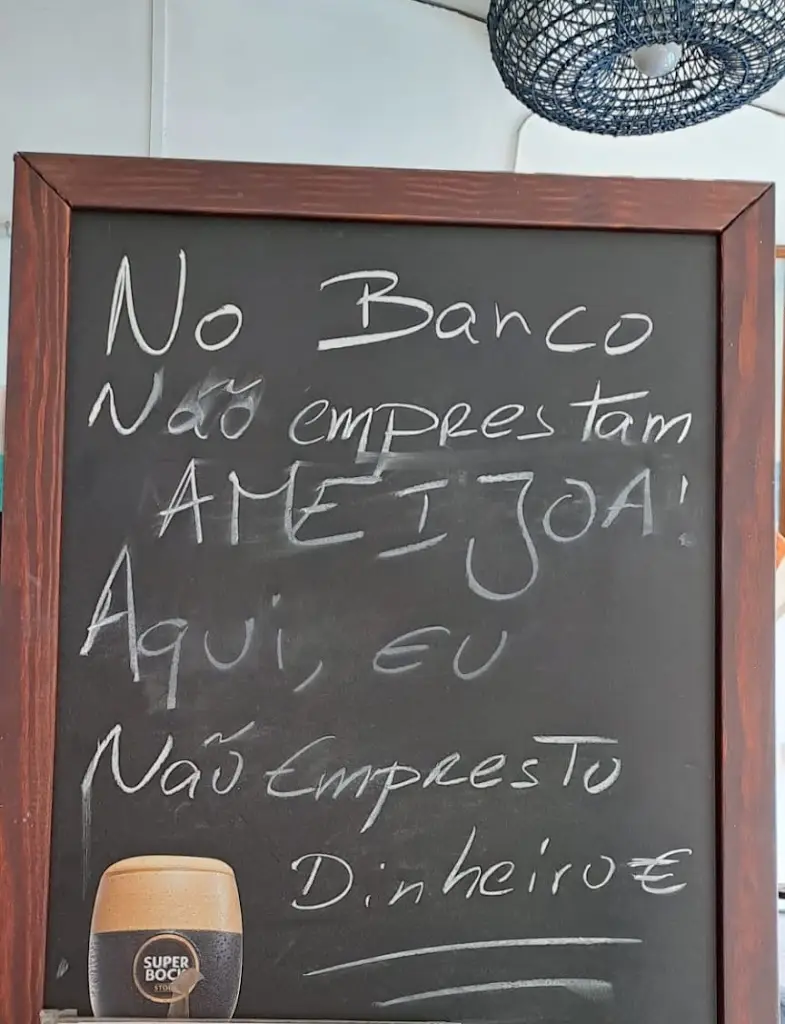 No Banco
Não emprestam
AMEIJOA!
Aqui, eu
Não Empresto
Dinheiro €
SUPER
BOCK
STOUT